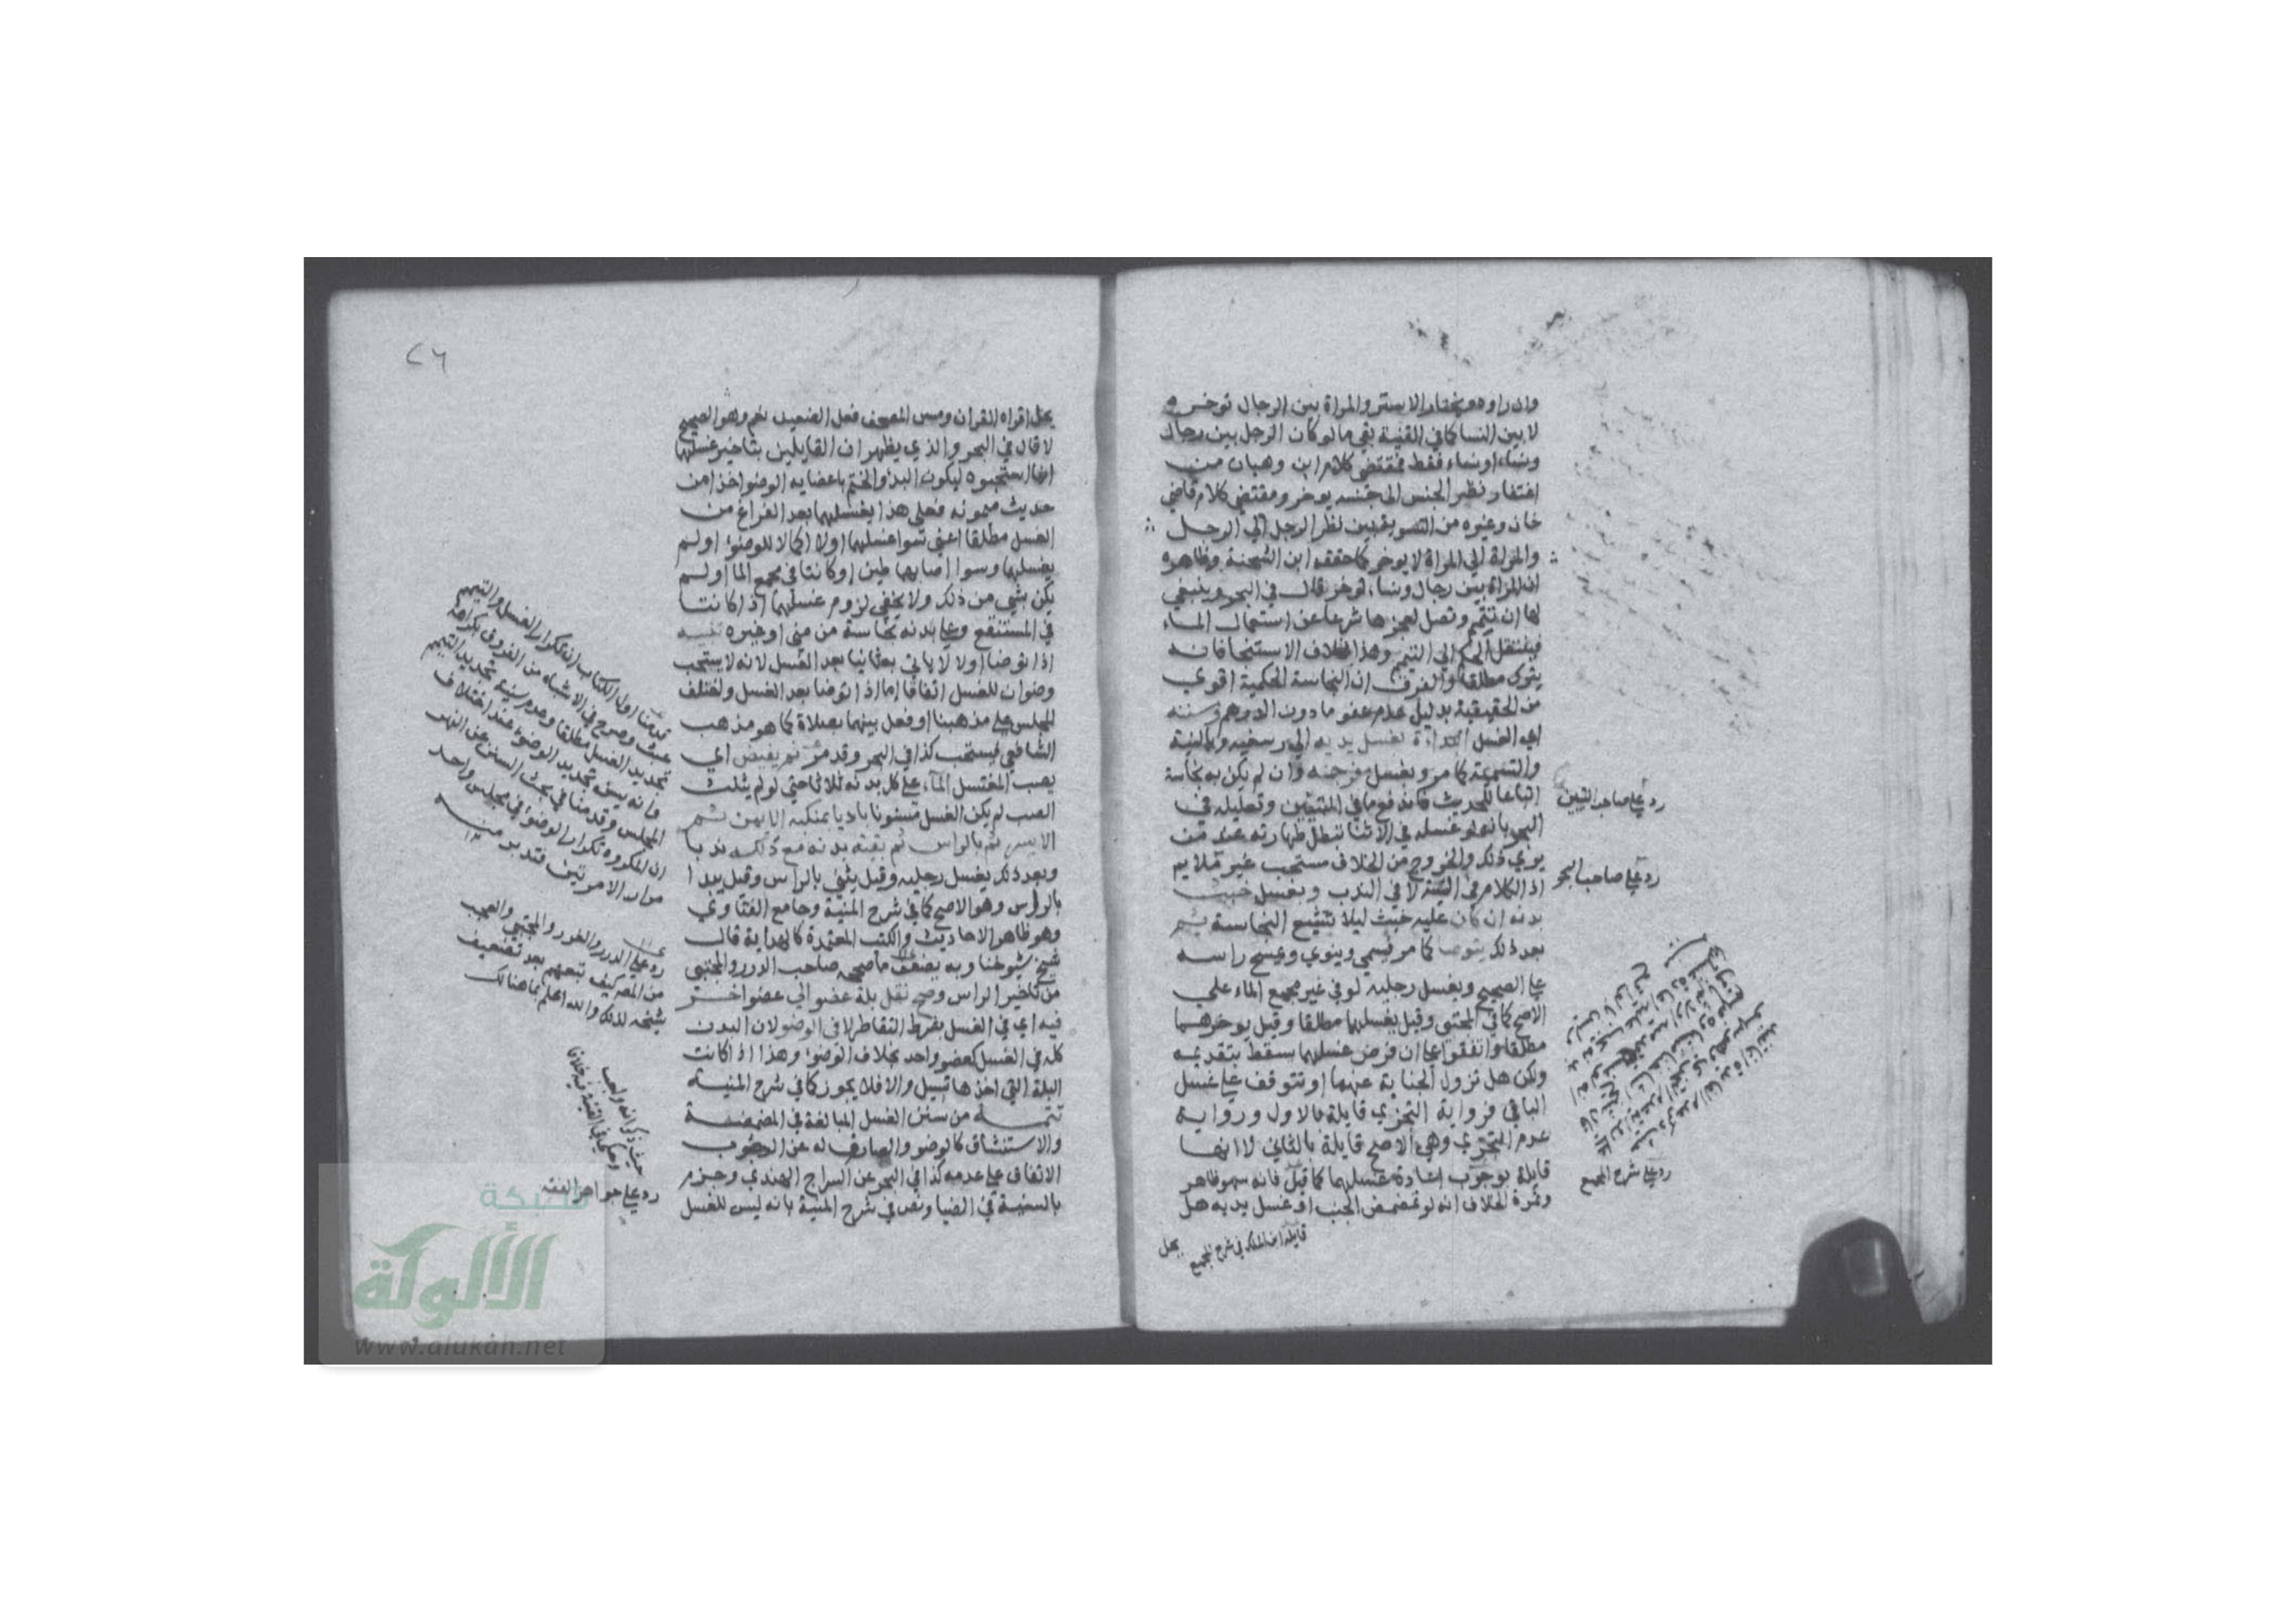 وان راوه ويختار الاستر والمراة بين الرجال توخره
لا بين النسا كما في القنية بقي ما لو كان الرجل بين رجال
ونساء او نساء فقط فمقتضى كلام ابن وهبان من
اغتفار نظر الجنس الى جنسه يوخر ومقتضي كلام قاضي
خان وغيره من التسوية بين نظر الرجل الي الرجل
والمراة الي المراة لا يوخر كما حققه ابن الشحنة وظاهره
ان المراة بين رجال ونساء توخر قال في البحر وينبغي
لها ان تتيمم وتصل لعجزها شرعا عن استعمال الماء
فينتقل الحكم الي التيمم وهذا بخلاف الاستنجا فانه
يترك مطلقا والفرق ان النجاسة الحكمية اقوي
من الحقيقية بدليل عدم عفو ما دون الدرهم وسنته
اي الغسل البداءة بغسل يديه الي رسغيه وبالنية
والتسمية كما مر وبغسل فرجه وان لم يكن به نجاسة
اتباعا للحديث فاندفع ما في التبيين وتعليله في
البحر بانه لو غسله في الاثنا تبطل طهارته عند من
يري ذلك والخروج من الخلاف مستحب غير ملايم
اذ الكلام في السنة لا في الندب وبغسل خبث
بدنه ان كان عليه خبث ليلا تشيع النجاسة ثم
بعد ذلك يتوضا كما مر فيسمي وينوي ويمسح راسه
علي الصحيح ويغسل رجليه لو في غير مجمع الماء علي
الاصح كما في المجتبى وقيل يغسلهما مطلقا وقيل يوخرهما
مطلقا واتفقوا علي ان فرض غسلهما يسقط بتقديمه
ولكن هل تزول الجنابة عنهما او تتوقف علي غسل
الباقي فرواية التجزي قايلة بالاول ورواية
عدم التجزي وهي الاصح قايلة بالثاني لا انها
قايلة بوجوب اعادة غسلهما كما قيل فانه سهو ظاهر
وثمرة الخلاف انه لو تمضمض الجنب او غسل يديه هل
قايله ابن الملك في شرح المجمع
يحل
رد علي صاحب التبيين
رد علي صاحب البحر
رد علي شرح المجمع
٢٦
يحل اقراه القران ومس المصحف فعل الضعيف نعم وهو الصحيح
لا قال في البحر والذي يظهر ان القايلين بتاخير غسلهما
انما استحبوه ليكون البدؤ والختم باعضايه الوضو اخذا من
حديث ميمونه فعلى هذا يغسلهما بعد الفراغ من
الغسل مطلقا اعني سوا غسلهما اولا اكمالا للوضوء او لم
يغسلهما وسوا اصابهما طين او كانتا في مجمع الما او لم
يكن بشي من ذلك ولا يخفي لزوم غسلهما اذا كانتا
في المستنقع وعلي بدنه نجاسة من مني او غيره تنبيه
اذا توضا اولا لا ياتي به ثانيا بعد الغسل لانه لا يستحب
وضوان للغسل اتفاقا اما اذا توضا بعد الغسل واختلف
المجلس علي مذهبنا او فعل بينهما بصلاة كما هو مذهب
الشافعي فيستحب كذا في البحر وقد مر ثم يفيض اي
يصب المغتسل الماء علي كل بدنه ثلاثا حتي لو لم يثلث
الصب لم يكن الغسل مسنونا باديا بمنكبه الايمن ثم
الايسر ثم بالراس ثم بقية بدنه مع ذلك ندبا
وبعد ذلك يغسل رجليه وقيل يثني بالراس وقيل يبدا
بالراس وهو الاصح كما في شرح المنية وجامع الفتاوي
وهو ظاهر الاحاديث والكتب المعتمدة كالهداية قال
شيخ شيوخنا وبه يضعف ما صححه صاحب الدرر والمجتبى
من تاخير الراس وصح نقل بلة عضو الي عضو اخر
فيه اي في الغسل بشرط التقاطر لا في الوضو لان البدن
كله في الغسل كعضو واحد بخلاف الوضوء وهذا اذا كانت
البلة التي اخذها تسيل والا فلا يجوز كما في شرح المنية
تتمة من سنن الغسل المبالغة في المضمضة
والاستنشاق كالوضو والصارف له عن الوجوب
الاتفاق علي عدمه كذا في البحر عن السراج الهندي وجزم
بالسنية في الضيا ونص في شرح المنية بانه ليس للغسل
قدمنا اول الكتاب ان تكرار الغسل والتيمم
عبث وصرح في الاشباه من الفروق بكراهة
تجديد الغسل مطلقا وعدم سنية تجديد التيمم
وانه يسن تجديد الوضوء عند اختلاف
المجلس وقدمنا في بحث السنن عن النهر
ان المكروه تكرار الوضوء في مجلس واحد
مرارا لا مرتين فتدبر منه
رد علي الدرر والغرر والمجتبي والعجب
من المص كيف تبعهم بعد تضعيف
شيخه لذلك والله اعلم بما هنالك
حيث ذكر انه واجب
وحكي في القنية فيه خلافا
رد علي جواهر الفقه
شبكة
الألوكة
www.alukah.net